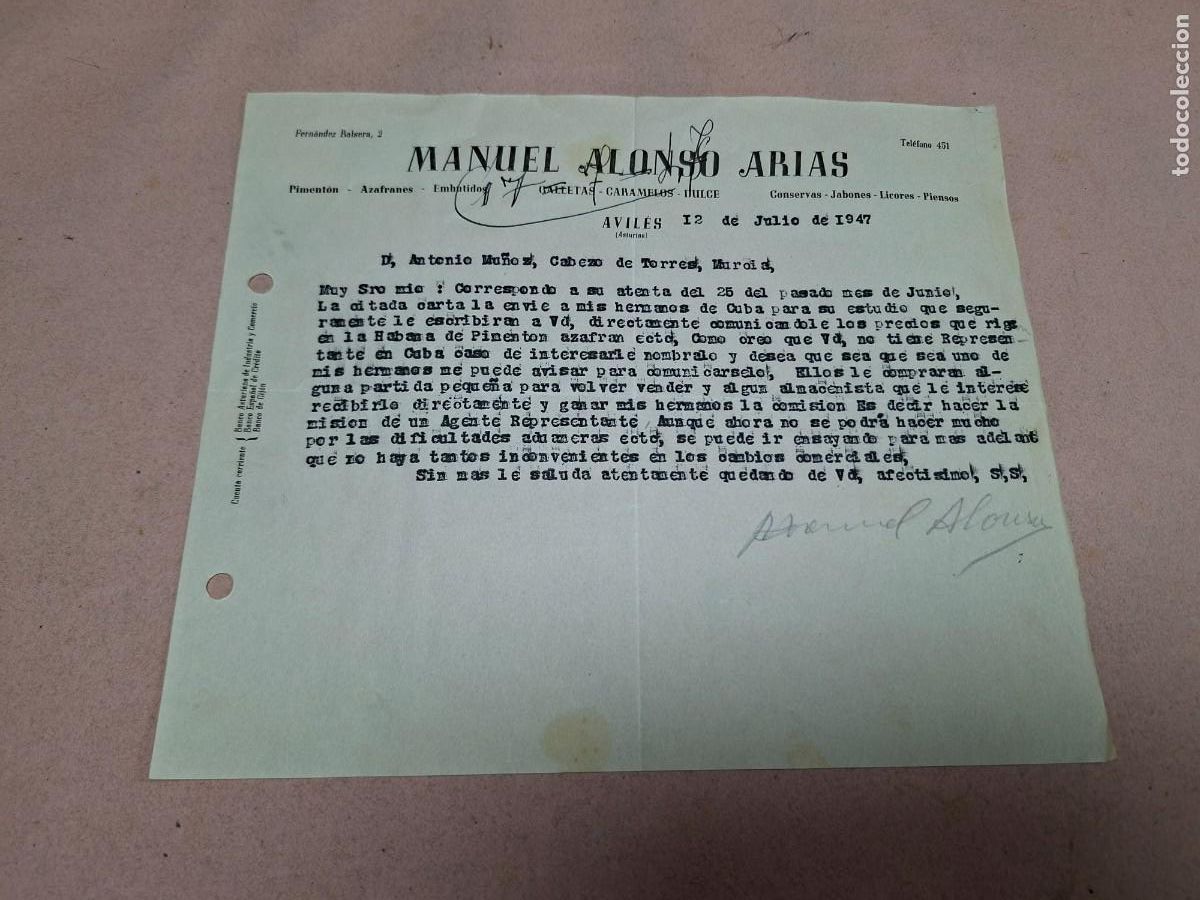 Fernández Balsera, 2
Teléfono 451
MANUEL ALONSO ARIAS
Pimentón - Azafranes - Embutidos
GALLETAS - CARAMELOS - DULCE
Conservas - Jabones - Licores - Piensos
17-7-47
AVILÉS 12 de Julio de 1947
(Asturias)
D, Antonio Muños, Cabezo de Torres, Murcia,
Muy Sro mio : Correspondo a su atenta del 25 del pasado mes de Junio,
La citada carta la envie a mis hermanos de Cuba para su estudio que segu-
ramente le escribiran a Vd, directamente comunicandole los precios que rige
en la Habana de Pimenton azafran ectc, Como creo que Vd, no tiene Represen-
tante en Cuba caso de interesarle nombralo y desea que sea que sea uno de
mis hermanos me puede avisar para comunicarselo, Ellos le compraran al-
guna partida pequeña para volver vender y algun almacenista que le interese
recibirlo directamente y ganar mis hermanos la comision Es decir hacer la
mision de un Agente Representante, Aunque ahora no se podrá hacer mucho
por las dificultades aduaneras ectc, se puede ir ensayando para mas adelant
que no haya tantos inconvenientes en los cambios comerciales,
Sin mas le saluda atentamente quedando de Vd, afectisimo, S,S,
Manuel Alonso
Cuenta corriente { Banco Asturiano de Industria y Comercio
Banco Español de Crédito
Banco de Gijón
todocoleccion